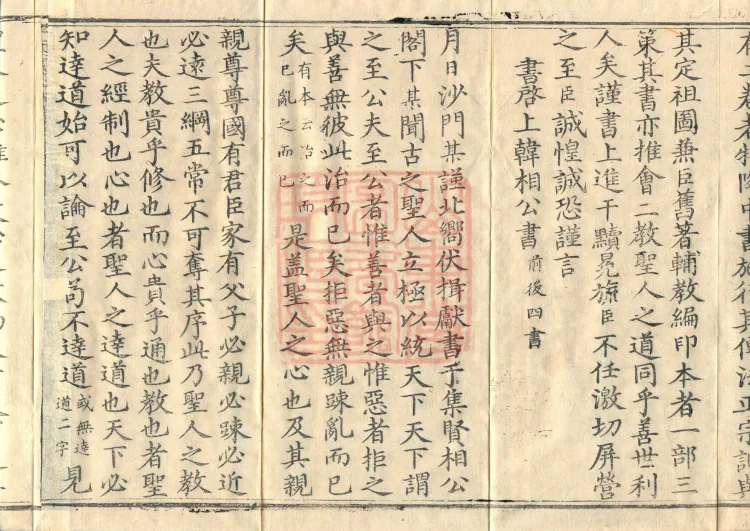 有二卷者特降中書施行其傳法正宗記與
其定祖圖兼臣舊著輔教編印本者一部三
策其書亦推會二教聖人之道同乎善世利
人矣謹書上進干黷冕旒臣不任激切屏營
之至臣誠惶誠恐謹言
書啓上韓相公書前後四書
月日沙門某謹北嚮伏揖獻書于集賢相公
閤下某聞古之聖人立極以統天下天下謂
之至公夫至公者惟善者與之惟惡者拒之
與善無彼此治而已矣拒惡無親踈亂而已
矣有本云治之而已亂之而已是盖聖人之心也及其親
親尊尊國有君臣家有父子必親必踈必近
必遠三綱五常不可奪其序此乃聖人之教
也夫教貴乎修也而心貴乎通也教也者聖
人之經制也心也者聖人之達道也天下必
知達道始可以論至公苟不達道或無達道二字見